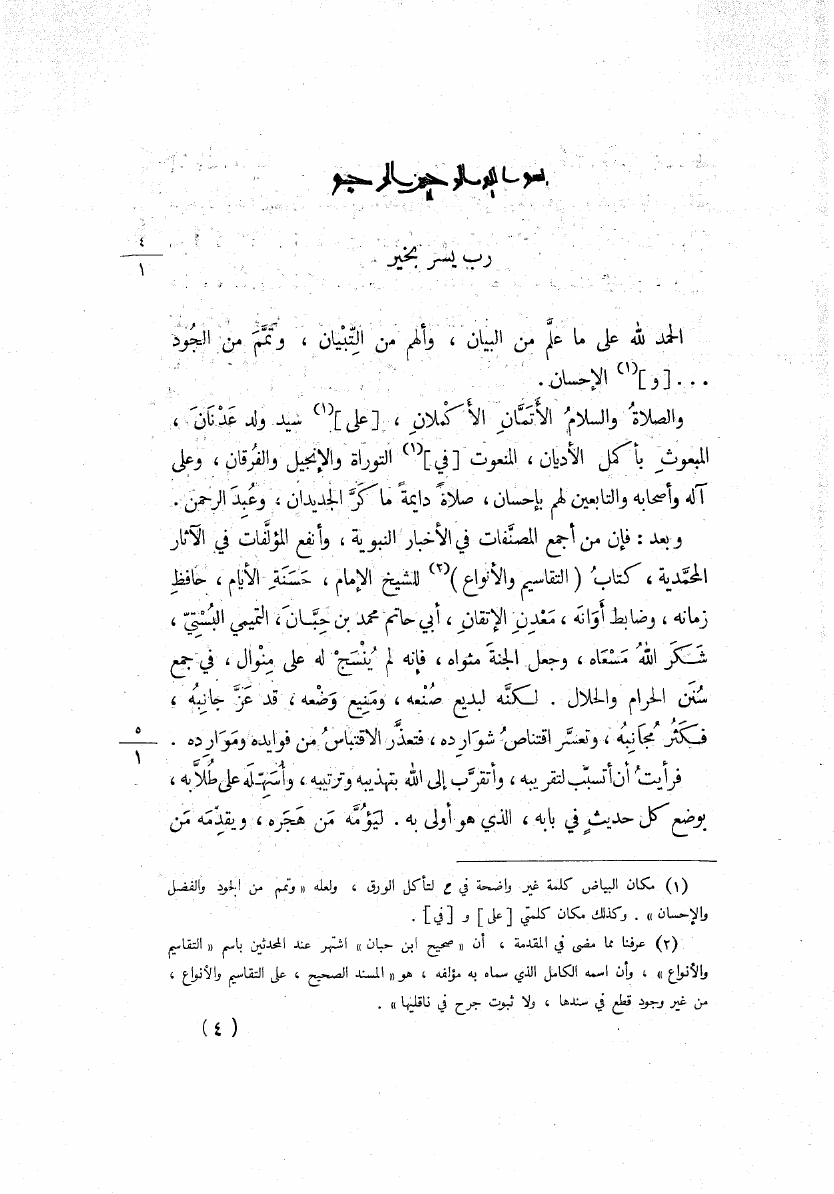 بسم الله الرحمن الرحيم
٤
١
رب يسر بخير
الحمد لله على ما علَّم من البيان ، وألهم من التِّبْيان ، وتَمَّمَ من الجُود
... [و](١) الإحسان .
والصلاةُ والسلامُ الأتمَّانِ الأكْملانِ ، [على](١) سيد ولد عَدْنَانَ ،
المبعوثِ بأكمل الأديان ، المنعوت [في](١) التوراة والإنجيل والفُرقان ، وعلى
آله وأصحابه والتابعين لهم بإحسان ، صلاةً دايمةً ما كَرَّ الجديدان ، وعُبِدَ الرحمن .
وبعد : فإن من أجمع المصنَّفات في الأخبار النبوية ، وأنفع المؤلَّفات في الآثار
المحمَّدية ، كتابُ ( التقاسيم والأنواع )(٢) للشيخ الإمام ، حَسَنَةِ الأيام ، حافظِ
زمانه ، وضابط أوَانَه ، مَعْدِنِ الإتقانِ ، أبي حاتم محمد بن حِبَّانَ ، التميمي البُسْتِيّ ،
شَكَرَ اللهُ مَسْعَاه ، وجعل الجنةَ مثواه ، فإنه لم يُنْسَجْ له على مِنْوال ، في جمع
سُنَن الحرام والحلال . لكنَّه لبديع صُنْعه ، ومَنِيع وَضْعه ، قد عَزَّ جانِبُه ،
فكَثُر مُجَانِبُه ، وتعسَّر اقتناصُ شوارِده ، فتعذَّر الاقتباسُ من فوايده ومَوَارِده .
٥
١
فرأيتُ أن أتسبَّب لتقريبه ، وأتقرَّب إلى الله بتهذيبه وترتيبه ، وأُسَهِّلَه على طُلَّابه ،
بوضع كل حديثٍ في بابه ، الذي هو أولى به . ليَؤُمَّه مَن هَجَره ، ويقدِّمَه مَن
(١) مكان البياض كلمة غير واضحة في ح لتأكل الورق ، ولعله «وتمم من الجود والفضل
والإحسان» . وكذلك مكان كلمتي [على] و [في] .
(٢) عرفنا مما مضى في المقدمة ، أن «صحيح ابن حبان» اشتهر عند المحدثين باسم «التقاسيم
والأنواع» ، وأن اسمه الكامل الذي سماه به مؤلفه ، هو «المسند الصحيح ، على التقاسيم والأنواع ،
من غير وجود قطع في سندها ، ولا ثبوت جرح في ناقليها» .
( ٤ )